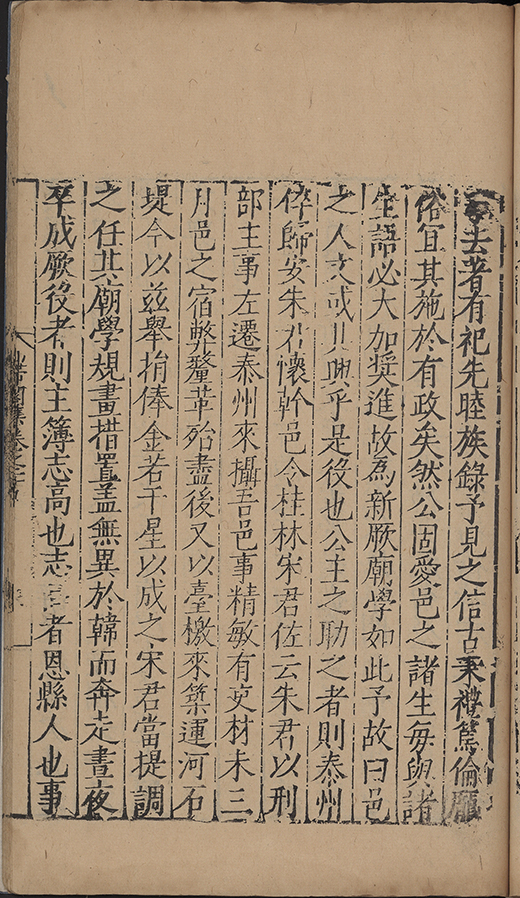 去著有祀先睦族錄予見之信古秉禮篤倫龐
俗宜其施於有政矣然公固愛邑之諸生每與諸
生語必大加奬進故為新厥廟學如此予故曰邑
之人文或其興乎是役也公主之助之者則泰州
倅歸安朱君懷幹邑令桂林宋君佐云朱君以刑
部主事左遷泰州來攝吾邑事精敏有吏材未三
月邑之宿弊釐革殆盡後又以臺檄來築運河石
堤今以兹舉捐俸金若干星以成之宋君當提調
之任其廟學規畫措置盖無異於韓而奔走晝夜
卒成厥役者則主簿志高也志者恩縣人也事